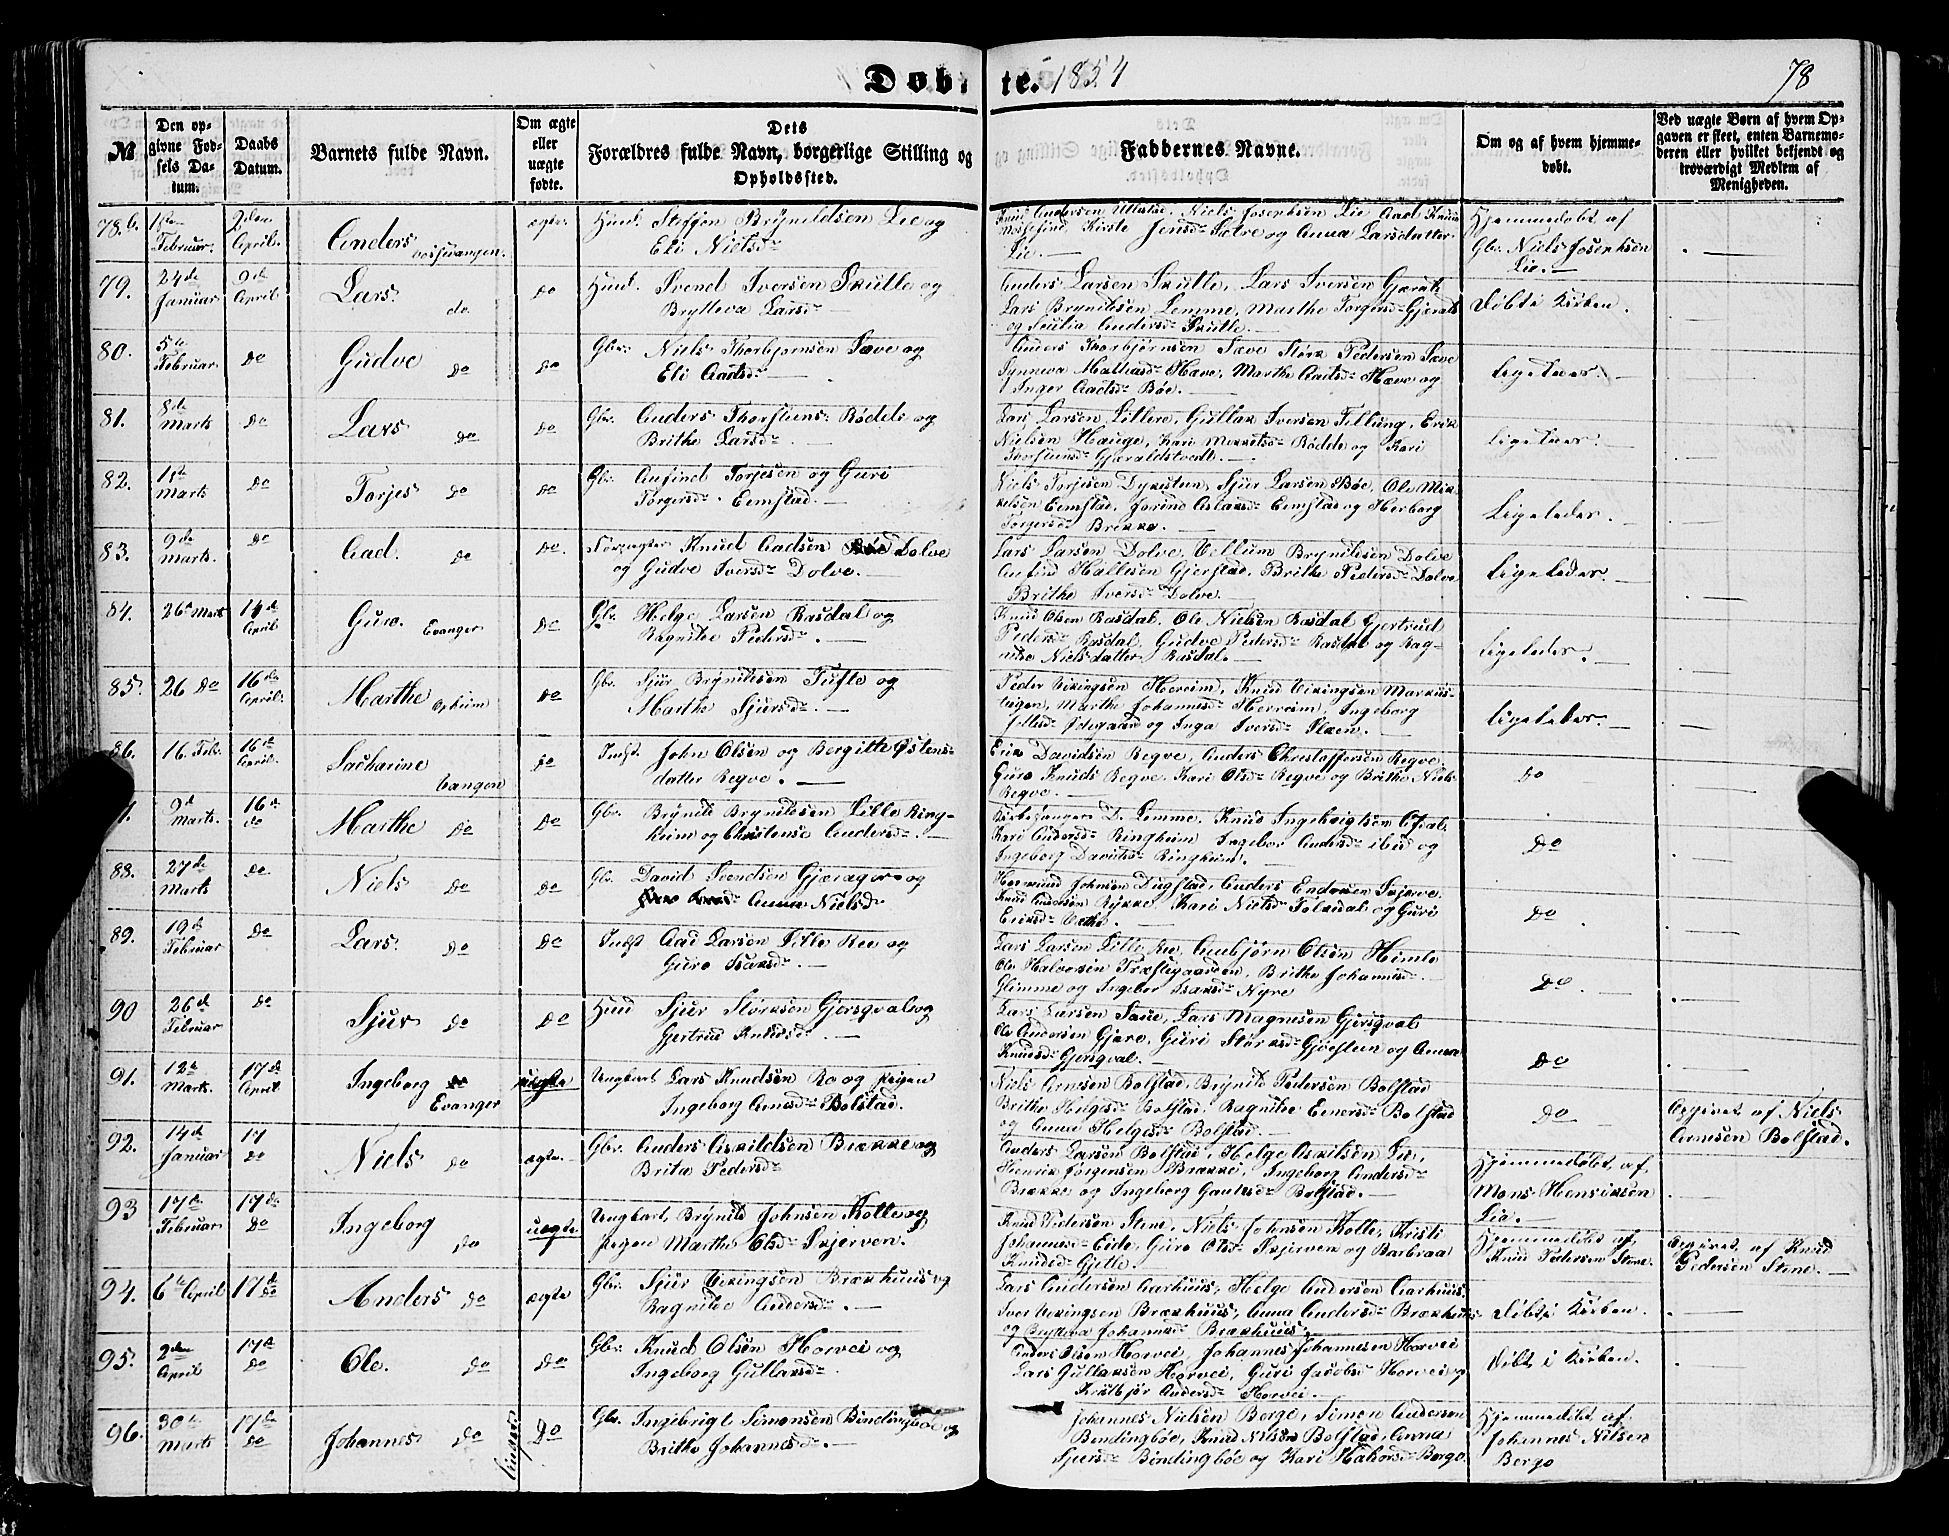 Døbte. 1854
78
№
Den opgivne Fødsels Datum.
Daabs Datum.
Barnets fulde Navn.
Om ægte eller uægte fødte.
Dets Forældres fulde Navn, borgerlige Stilling og Opholdssted.
Faddernes Navne.
Om og af hvem hjemmedøbt.
Ved uægte Børn af hvem Opgaven er skeet, enten Barnemoderen eller hvilket bekjendt og troværdigt Medlem af Menigheden.
78.b. 1ste Februar. 2den April. Anders Vossevangen. ægte. Huusd. Steffen Brynildsen Lie og
Eli Nielsd:
Knud Andersen Ullestad, Niels Josephsen Lie Aad Knuds
Kirsti Jensd: Sætre og Anna Larsdatter
Lie.
Hjemmedøbt af
Gbr. Niels Josephsen
Lie.
79. 24de Januar 9de April Lars do do Huusd. Svend Iversen Skutle og
Brytteva Larsd:
Anders Larsen Skutle, Lars Iversen Gjerald
Lars Brynildsen Lemme, Marthe Torgersd: Gjerald
og Andersd: Skutle.
Døbt i Kirken.
80. 5te Februar do Gudve do do Gbr. Niels Thorbjørnsen Sæve og
Eli Aadsd:
Anders Thorbjørnsen Sæve Størk Pedersen Sæve
Synneva Mathiasd: Hæve, Marthe Aadsd: Hæve og
Inger Aadsd: Bøe.
Ligeledes.
81. 8de Marts do Lars do do Gbr. Anders Thorsteins: Rødde og
Brithe Larsd:
Lars Larsen Litlere, Gullak Iversen Tillung, Erik
Nielsen Hauge, Kari Rødde og Kari
Thorsteinsd: Gjeraldstvedt.
Ligeledes.
82. 1ste Marts do Torjes do do Gbr. Anfind Torjesen og Guri
Torgersd: Eemstad.
Niels Torjesen Dykestun, Sjur Larsen Bøe, Ole Mik-
kelsen Eemstad, Jorind Aslaksd: Eemstad og Herborg
Torgersd: Brekke.
Ligeledes.
83. 9de Marts. do Aad. do do. Knud Aadsen Dolve
og Gudve Iversd: Dolve.
Lars Larsen Dolve, Vellum Brynildsen Dolve
Anfind Hallesen Gjerstad, Brithe Pedersd: Dolve
Brithe Iversd: Dolve.
Ligeledes.
84. 26de Marts 14de April Guro. Evanger do Gbr. Helge Larsen Rasdal og
Ragnilde Pedersd:
Knud Olsen Rasdal, Ole Nielsen Rasdal Gjertrud
Pedersd: Rasdal, Gudve Pedersd: Rasdal og Rag-
nilde Nielsdatter Rasdal.
Ligeledes.
85. 26 do 16de April. Marthe Opheim do Gbr. Sjur Brynildsen Tufte og
Marthe Sjursd:
Peder Vikingsen Herreim, Knud Vikingsen Markus-
teigen, Marthe Johannesd: Herreim, Ingeborg
og Inga Iversd: Plaen.
Ligeledes.
86. 16. Feb. 16de April. Sacharine Vangen do Indst. John Olsen og Bergitte Østens-
datter Regve.
Erik Davidsen Regve, Anders Christoffersen Regve
Guro Knuds Regve, Kari Olsd: Regve og Brithe Niels
Regve.
do
9de Marts. 16de do Marthe do do Gbr. Brynild Brynildsen Lille Ring-
heim og Christense Andersd:
Kirkesanger D. Lemme, Knud Ingebrigtsen Afdal
Kari Andersd: Ringheim Ingebor Andersd: ibid og
Ingeborg Davidsd: Ringheim.
do
88. 27de Marts do. Niels do do Gbr. David Svendsen Gjerager og
Anna Nielsd:
Hermund Johnsen Dugstad, Anders Endresen Skjerve
Knud Andersen Rykke Kari Nielsd: og Guri
Eriksd:
do
89. 19de Februar do Lars. do do Indst Aad Larsen Lille Ree og
Guro Isaksd:
Lars Larsen Lille Ree, Anbjørn Olsen Himle
Ole Halvorsen Præstegaarden, Brithe Johannesd.
Glimme og Ingebor Isaksd: Nyre
do.
90 26de Februar do Sjur do do Huusd Sjur Størksen Gjersqval og
Gjertrud Knudsd:
Lars Larsen Saue, Lars Magnesen Gjersqval
Ole Andersen Gjere, Guri Størksd: Gjøstein og Anna
Knudsd: Gjersqval.
do
91. 12te Marts. 17de April Ingeborg Evanger uægte Ungkarl Lars Knudsen Ro og Pigen
Ingeborg Arnesd: Bolstad.
Niels Arnesen Bolstad, Brynild Pedersen Bolstad
Brithe Helgesd: Bolstad, Ragnilde Einersd: Bolstad
og Anna Helgesd: Bolstad.
do
Opgivet af Niels
Arnesen Bolstad.
92. 14de Januar 17 do Niels do ægte. Gbr. Anders Askildsen Brække og
Brita Pedersd:
Anders Larsen Bolstad, Helge Askilsen Lie,
Henrik Jørgensen Brække, Ingeborg Andersd:
Brække og Ingeborg Gautesd: Bolstad.
Hjemmedøbt af
Mons Henriksen
Lie.
93 17de Februar 17de do Ingeborg do uægte Ungkarl, Brynild Johnsen Kolle og
pigen Marthe Olsd: Skjerven.
Knud Pedersen Stene, Niels Johnsen Kolle, Kristi
Johannesd: Eide, Guro Olsd: Skjerven og Barbraa
Knudsd: Gjelle.
Hjemmedøbt af
Knud Pedersen Stene.
Opgivet af Knud
Pedersen Stene.
94. 6te April 17de do Anders do ægte Gbr. Sjur Vikingsen Brækhuus og
Ragnilde Andersd:
Lars Andersen Aarhuus, Helge Andersen Aarhuus.
Iver Vikingsen Brækhuus, Anna Andersd: Brækhuus
og Brytteva Johannesd: Brækhuus.
Døbt i Kirken.
95. 2den April 17de do Ole. do do Gbr. Knud Olsen Horvei og
Ingeborg Gullaksd:
Anders Olsen Horvei, Johannes Johannesen Horvei
Lars Gullaksen Horvei, Guri Jacobsd: Horvei og
Andersd: Horvei.
døbt i Kirken.
96. 30te Marts 17de do Johannes do do Gbr. Ingebrigt Simonsen Bindingbøe og
Brithe Johannesd:
Johannes Nielsen Berge, Simon Andersen
Bindingbøe, Knud Nilsen Bolstad, Anna
Sjursd: Bindingbøe og Kari Haldorsd: Berge.
Hjemmedøbt af
Johannes Nilsen
Berge